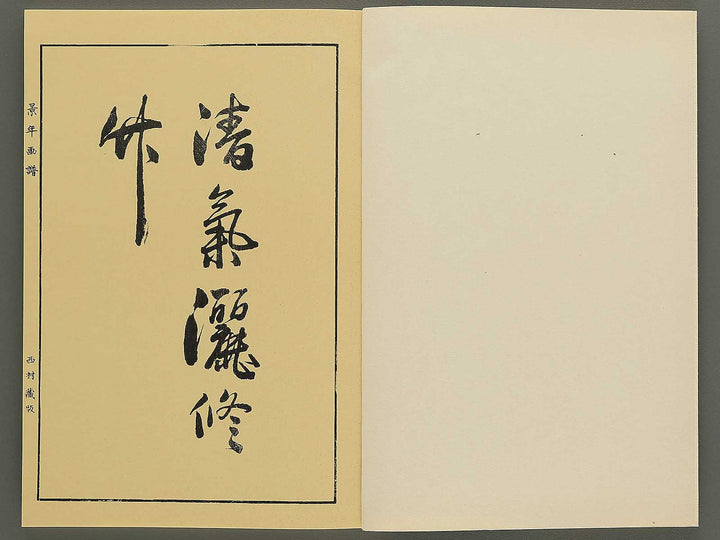 清氣灑修
竹
景年画譜
西村藏版